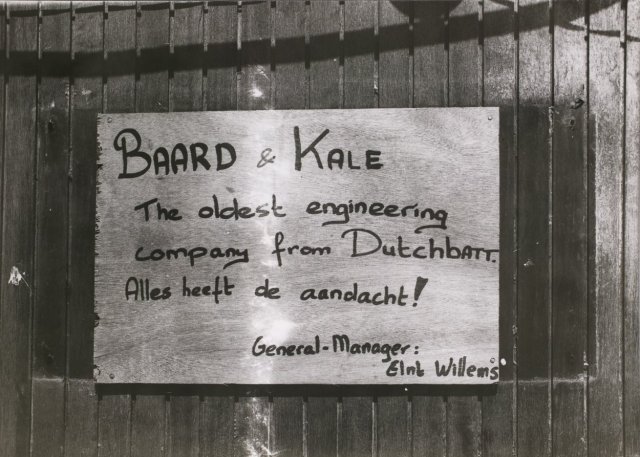 BAARD & KALE
The oldest engineering
company from DutchBATT.
Alles heeft de aandacht!
General-Manager:
Elnt Willems